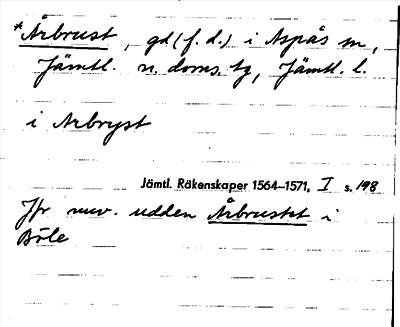 *Årbrust, gd (f.d.) i Aspås sn,
Jämtl. n. doms. tg, Jämtl. l.
i Arbryst
Jämtl. Räkenskaper 1564–1571, I s. 198
Jfr nuv. udden Årbrustet i
Böle